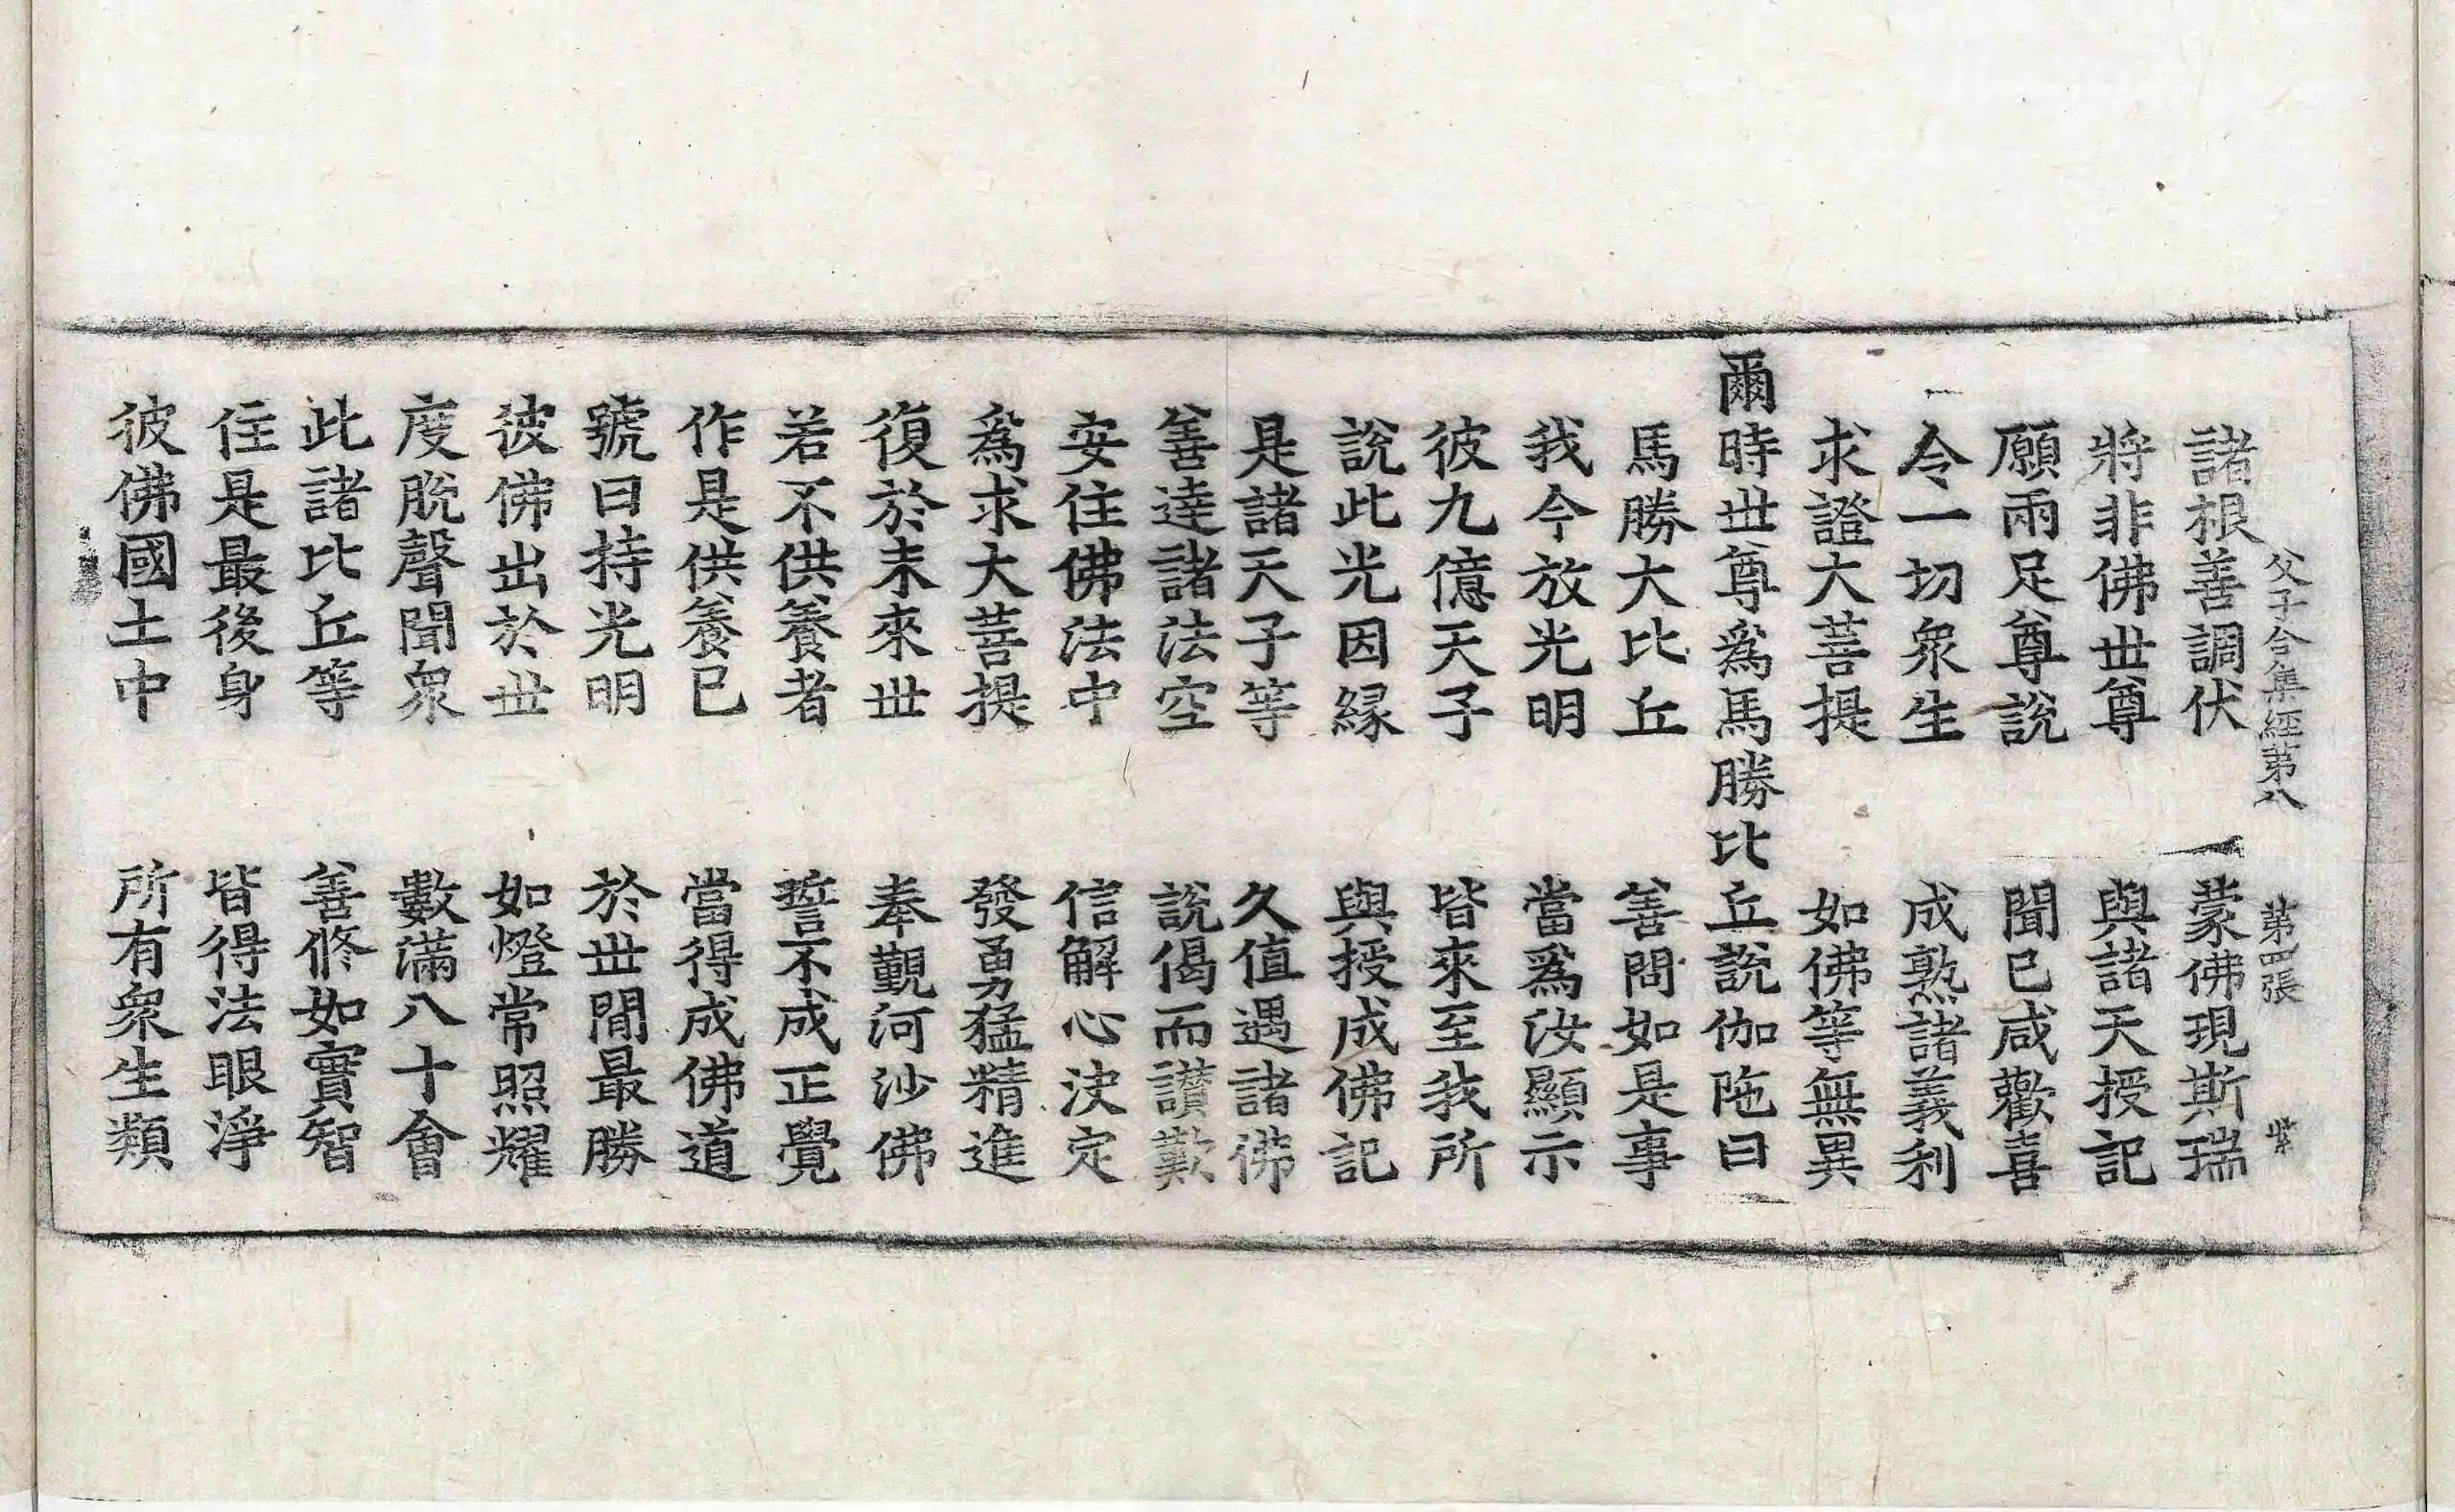 父子合集經第八 第四張 紫
諸根善調伏 蒙佛現斯瑞
將非佛世尊 與諸天授記
願兩足尊說 聞已咸歡喜
令一切衆生 成熟諸義利
求證大菩提 如佛等無異
爾時世尊爲馬勝比丘說伽陁曰
馬勝大比丘 善問如是事
我今放光明 當爲汝顯示
彼九億天子 皆來至我所
說此光因緣 與授成佛記
是諸天子等 久值遇諸佛
善達諸法空 說偈而讃歎
安住佛法中 信解心決定
爲求大菩提 發勇猛精進
復於末來世 奉覲河沙佛
若不供養者 誓不成正覺
作是供養已 當得成佛道
號曰持光明 於世間最勝
彼佛出於世 如燈常照耀
度脫聲聞衆 數滿八十會
此諸比丘等 善修如實智
住是最後身 皆得法眼淨
彼佛國土中 所有衆生類